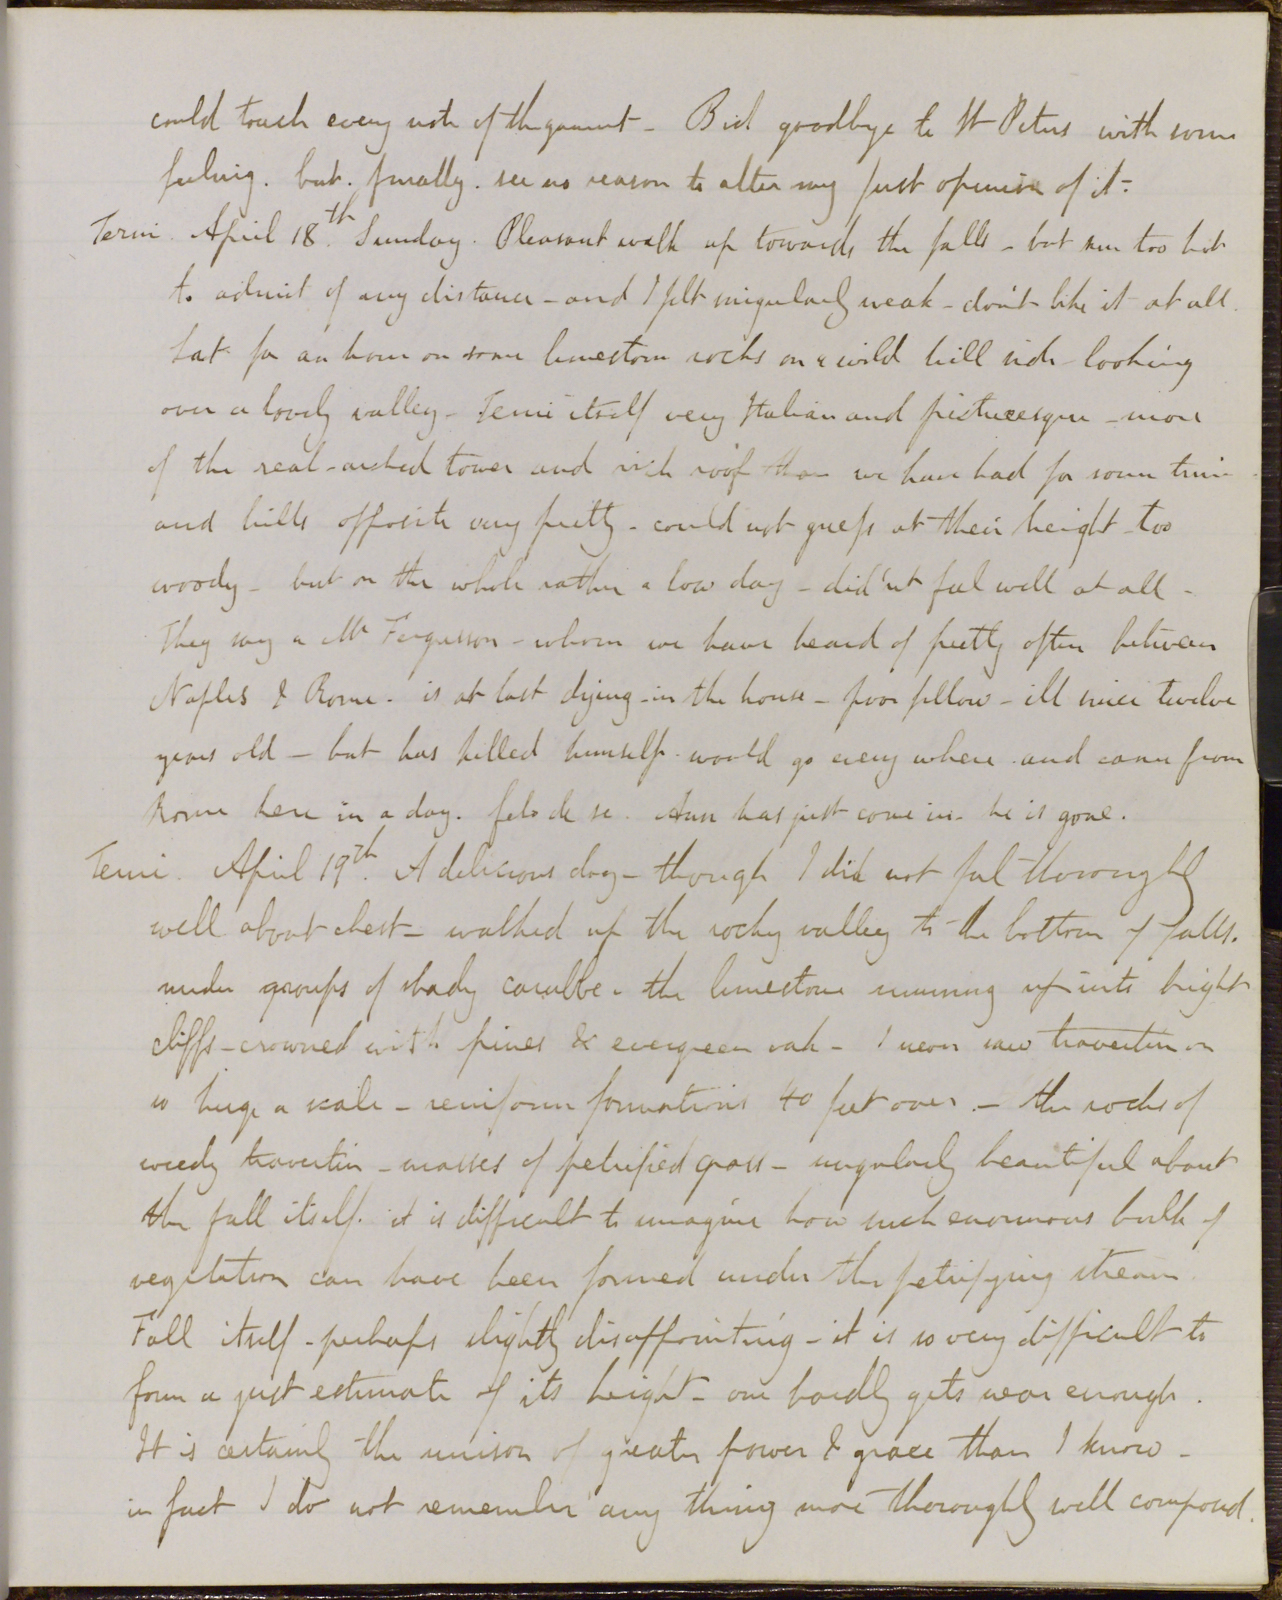 could touch every note of the gamut - Bid goodbye to St Peters with some
feeling. but. finally. see no reason to alter my first opinion of it -
Terni. April 18th. Sunday. Pleasant walk up towards the falls - but sun too hot
to admit of any distance - and I felt singularly weak - don't like it at all.
Sat for an hour on some limestone rocks on a wild hill side looking
over a lovely valley - Terni itself very Italian and picturesque - more
of the real - arched tower and rich roof than we have had for some time
and hills opposite very pretty - could not guess at their height - too
woody - but on the whole rather a low day - did'nt feel well at all -
They say a Mr Fergusson - whom we have heard of pretty often between
Naples & Rome. is at last dying - in the house - poor fellow - ill since twelve
years old - but has killed himself. would go every where. and came from
Rome here in a day. felo de se. Ann has just come in. he is gone.
Terni. April 19th. A delicious day - though I did not feel thoroughly
well about chest - walked up the rocky valley to the bottom of falls.
under groups of shady - the limestone running up into bright
cliffs - crowned with pines & evergreen oak - I never saw travertin on
so huge a scale - reniform formations 40 feet over. - the rocks of
weedy travertin - masses of petrified grass - singularly beautiful about
the fall itself. it is difficult to imagine how such enormous bulk of
vegetation can have been formed under the petrifying stream.
Fall itself - perhaps slightly disappointing - it is so very difficult to
form a just estimate of its height - one hardly gets near enough.
It is certainly the unison of greater power & grace than I know -
in fact I do not remember any thing more thoroughly well composed.